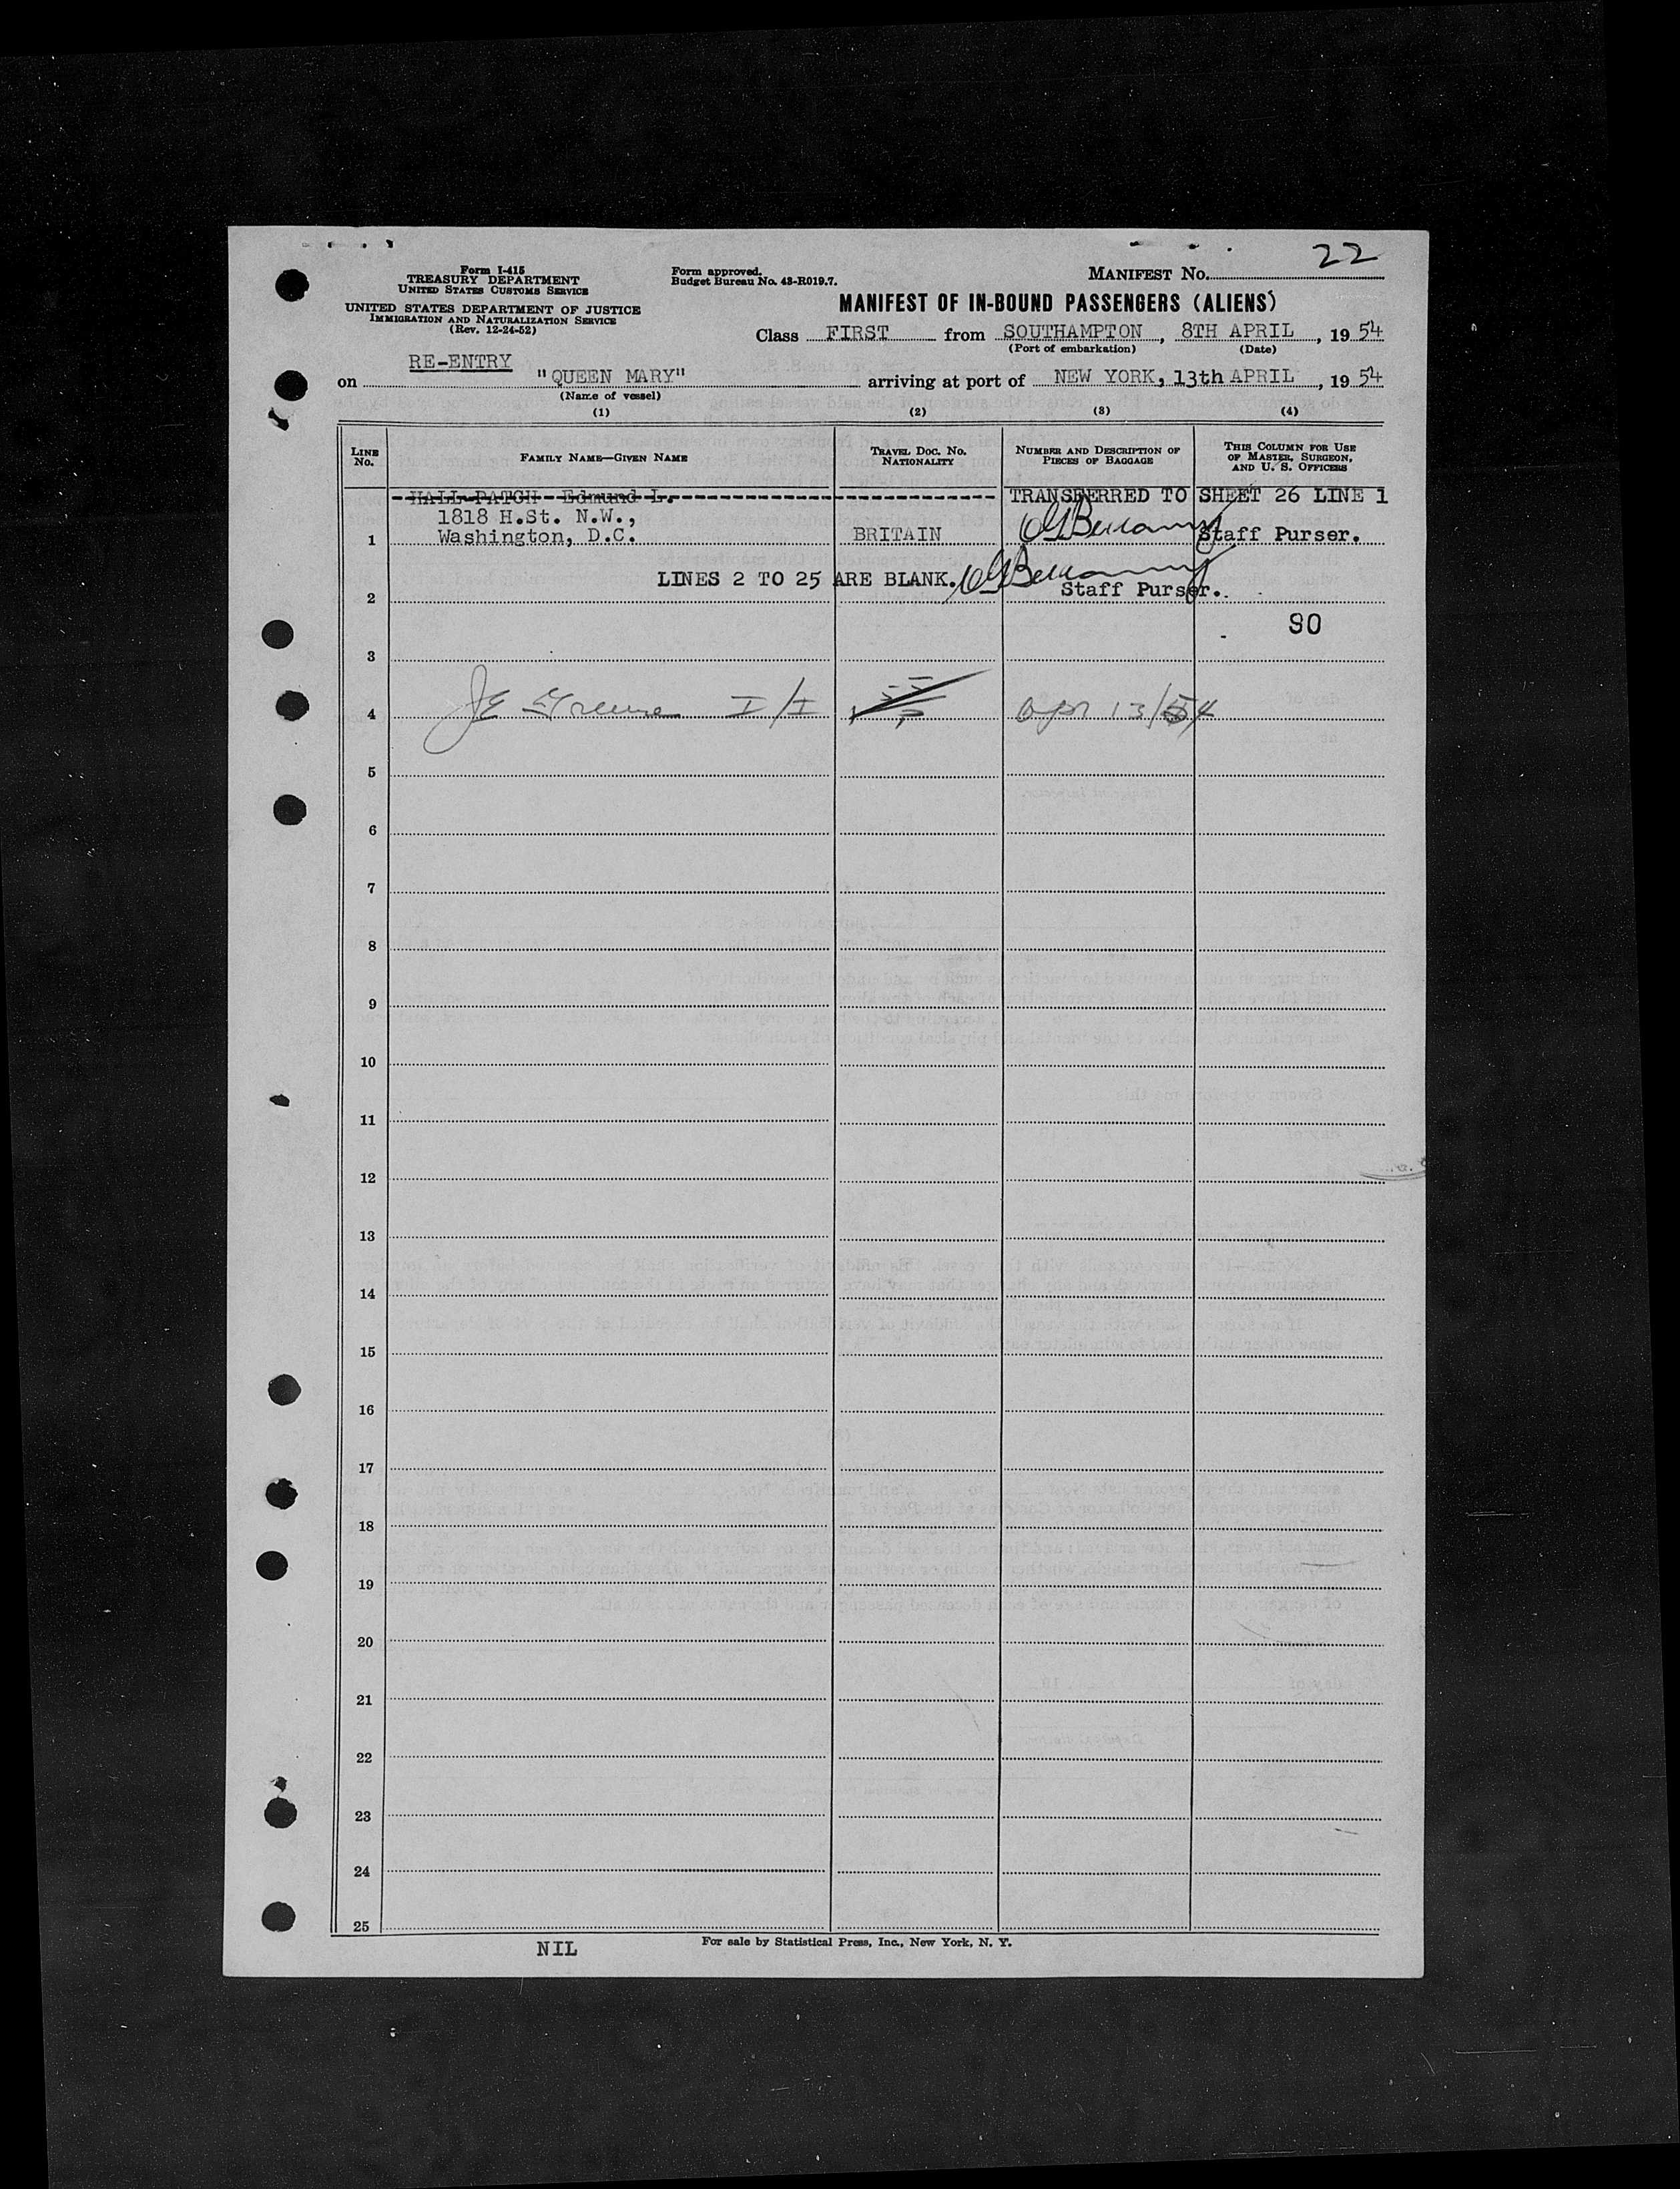 22
Form I-415
TREASURY DEPARTMENT
UNITED STATES CUSTOMS SERVICE
UNITED STATES DEPARTMENT OF JUSTICE
IMMIGRATION AND NATURALIZATION SERVICE
(Rev. 12-24-52)
Form approved.
Budget Bureau No. 43-R019.7.
MANIFEST No.
MANIFEST OF IN-BOUND PASSENGERS (ALIENS)
Class FIRST from SOUTHAMPTON, 8TH APRIL, 1954
(Port of embarkation) (Date)
RE-ENTRY
on "QUEEN MARY" arriving at port of NEW YORK, 13th APRIL, 1954
(Name of vessel)
(1) (2) (3) (4)
LINE No. FAMILY NAME—GIVEN NAME TRAVEL DOC. No. NATIONALITY NUMBER AND DESCRIPTION OF PIECES OF BAGGAGE THIS COLUMN FOR USE OF MASTER, SURGEON, AND U. S. OFFICERS
HALL-PATCH Edmund L. TRANSFERRED TO SHEET 26 LINE 1
1818 H.St. N.W.,
1 Washington, D.C. BRITAIN Staff Purser.
LINES 2 TO 25 ARE BLANK.
2 Staff Purser.
90
3
4 JE Greene I/I Apr 13/54
5
6
7
8
9
10
11
12
13
14
15
16
17
18
19
20
21
22
23
24
25
NIL For sale by Statistical Press, Inc., New York, N. Y.